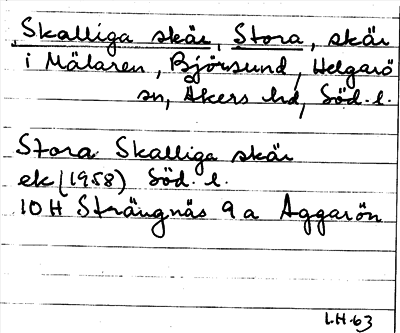 Skalliga skär, Stora, skär
i Mälaren, Björsund, Helgarö
sn, Åkers hd, Söd. l.
Stora Skalliga skär
ek (1958) Söd. l.
10 H Strängnäs 9 a Aggarön
L.H. 63